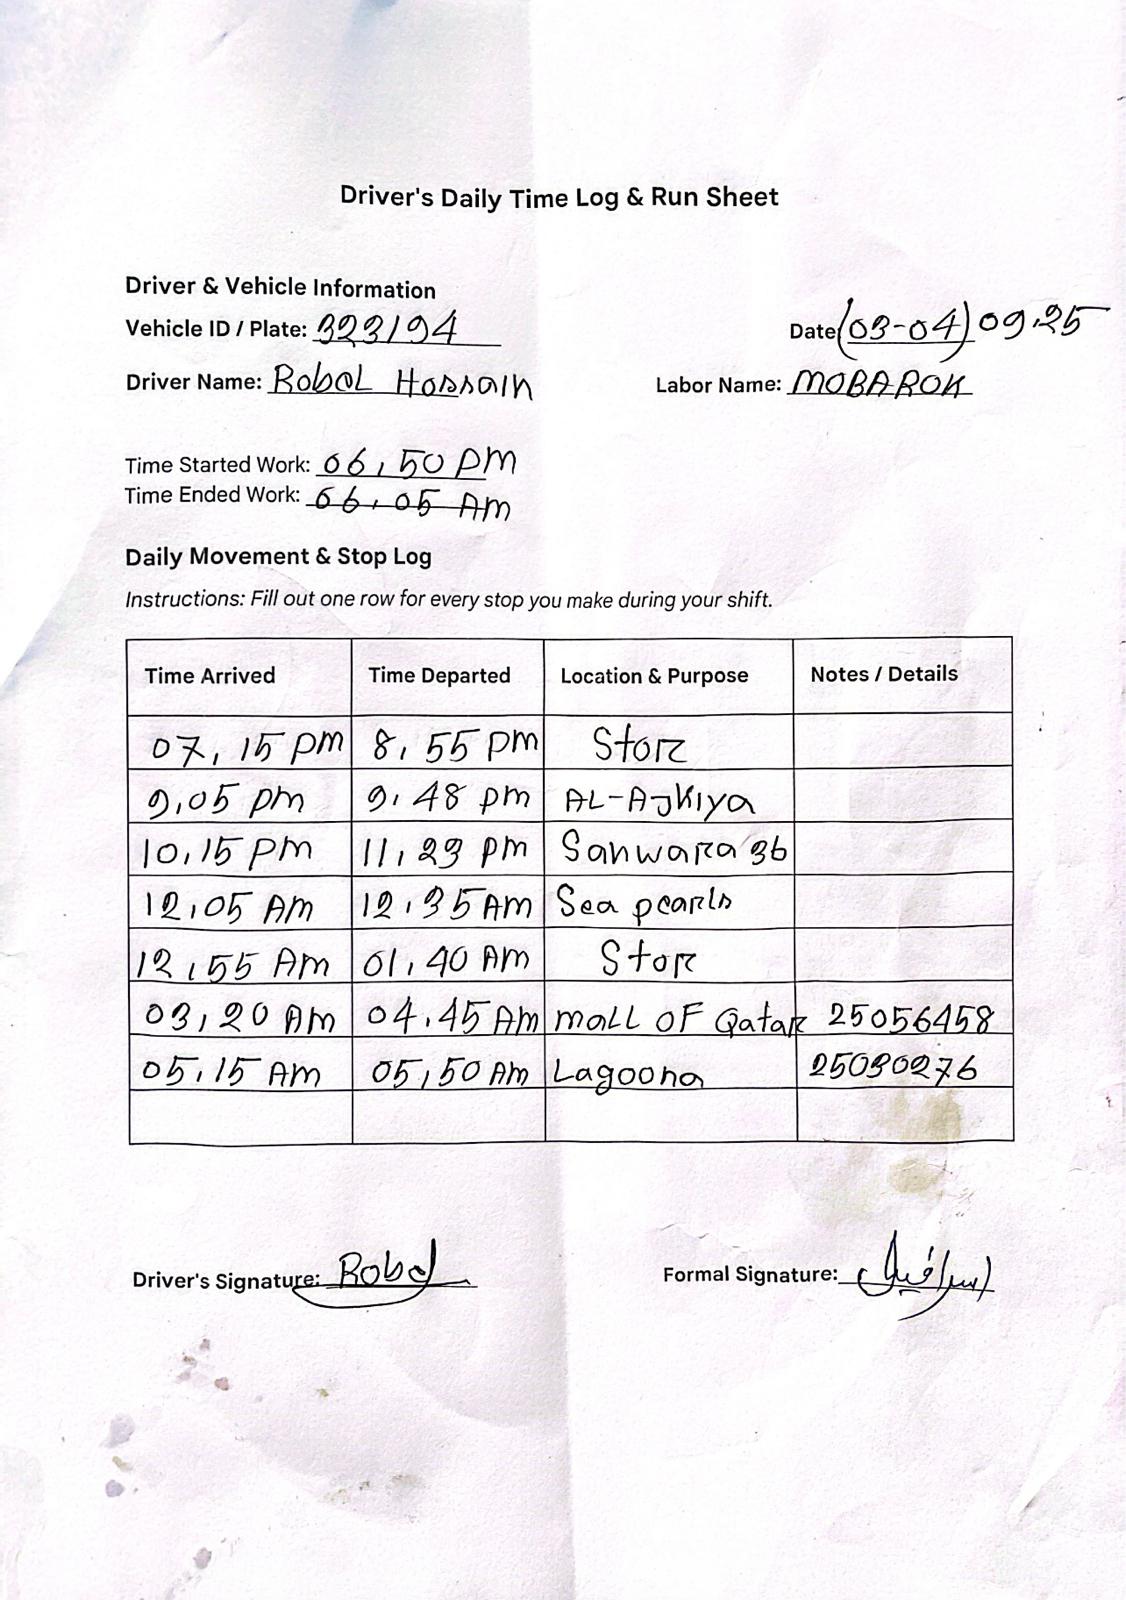 Driver's Daily Time Log & Run Sheet
Driver & Vehicle Information
Vehicle ID / Plate: 323194
Date (03-04) 09.25
Driver Name: Robel Hossain
Labor Name: MOBAROK
Time Started Work: 06,50 PM
Time Ended Work: 06,05 AM
Daily Movement & Stop Log
Instructions: Fill out one row for every stop you make during your shift.
Time Arrived Time Departed Location & Purpose Notes / Details
07,15 PM 8,55 PM Stor
9,05 PM 9,48 PM AL-AJKiya
10,15 PM 11,23 PM Sanwara 36
12,05 AM 12,35 AM Sea pearls
12,55 AM 01,40 AM Stor
03,20 AM 04,45 AM mall OF Qatar 25056458
05,15 AM 05,50 AM Lagoona 25030276
Driver's Signature: Robel
Formal Signature: اسرافيل